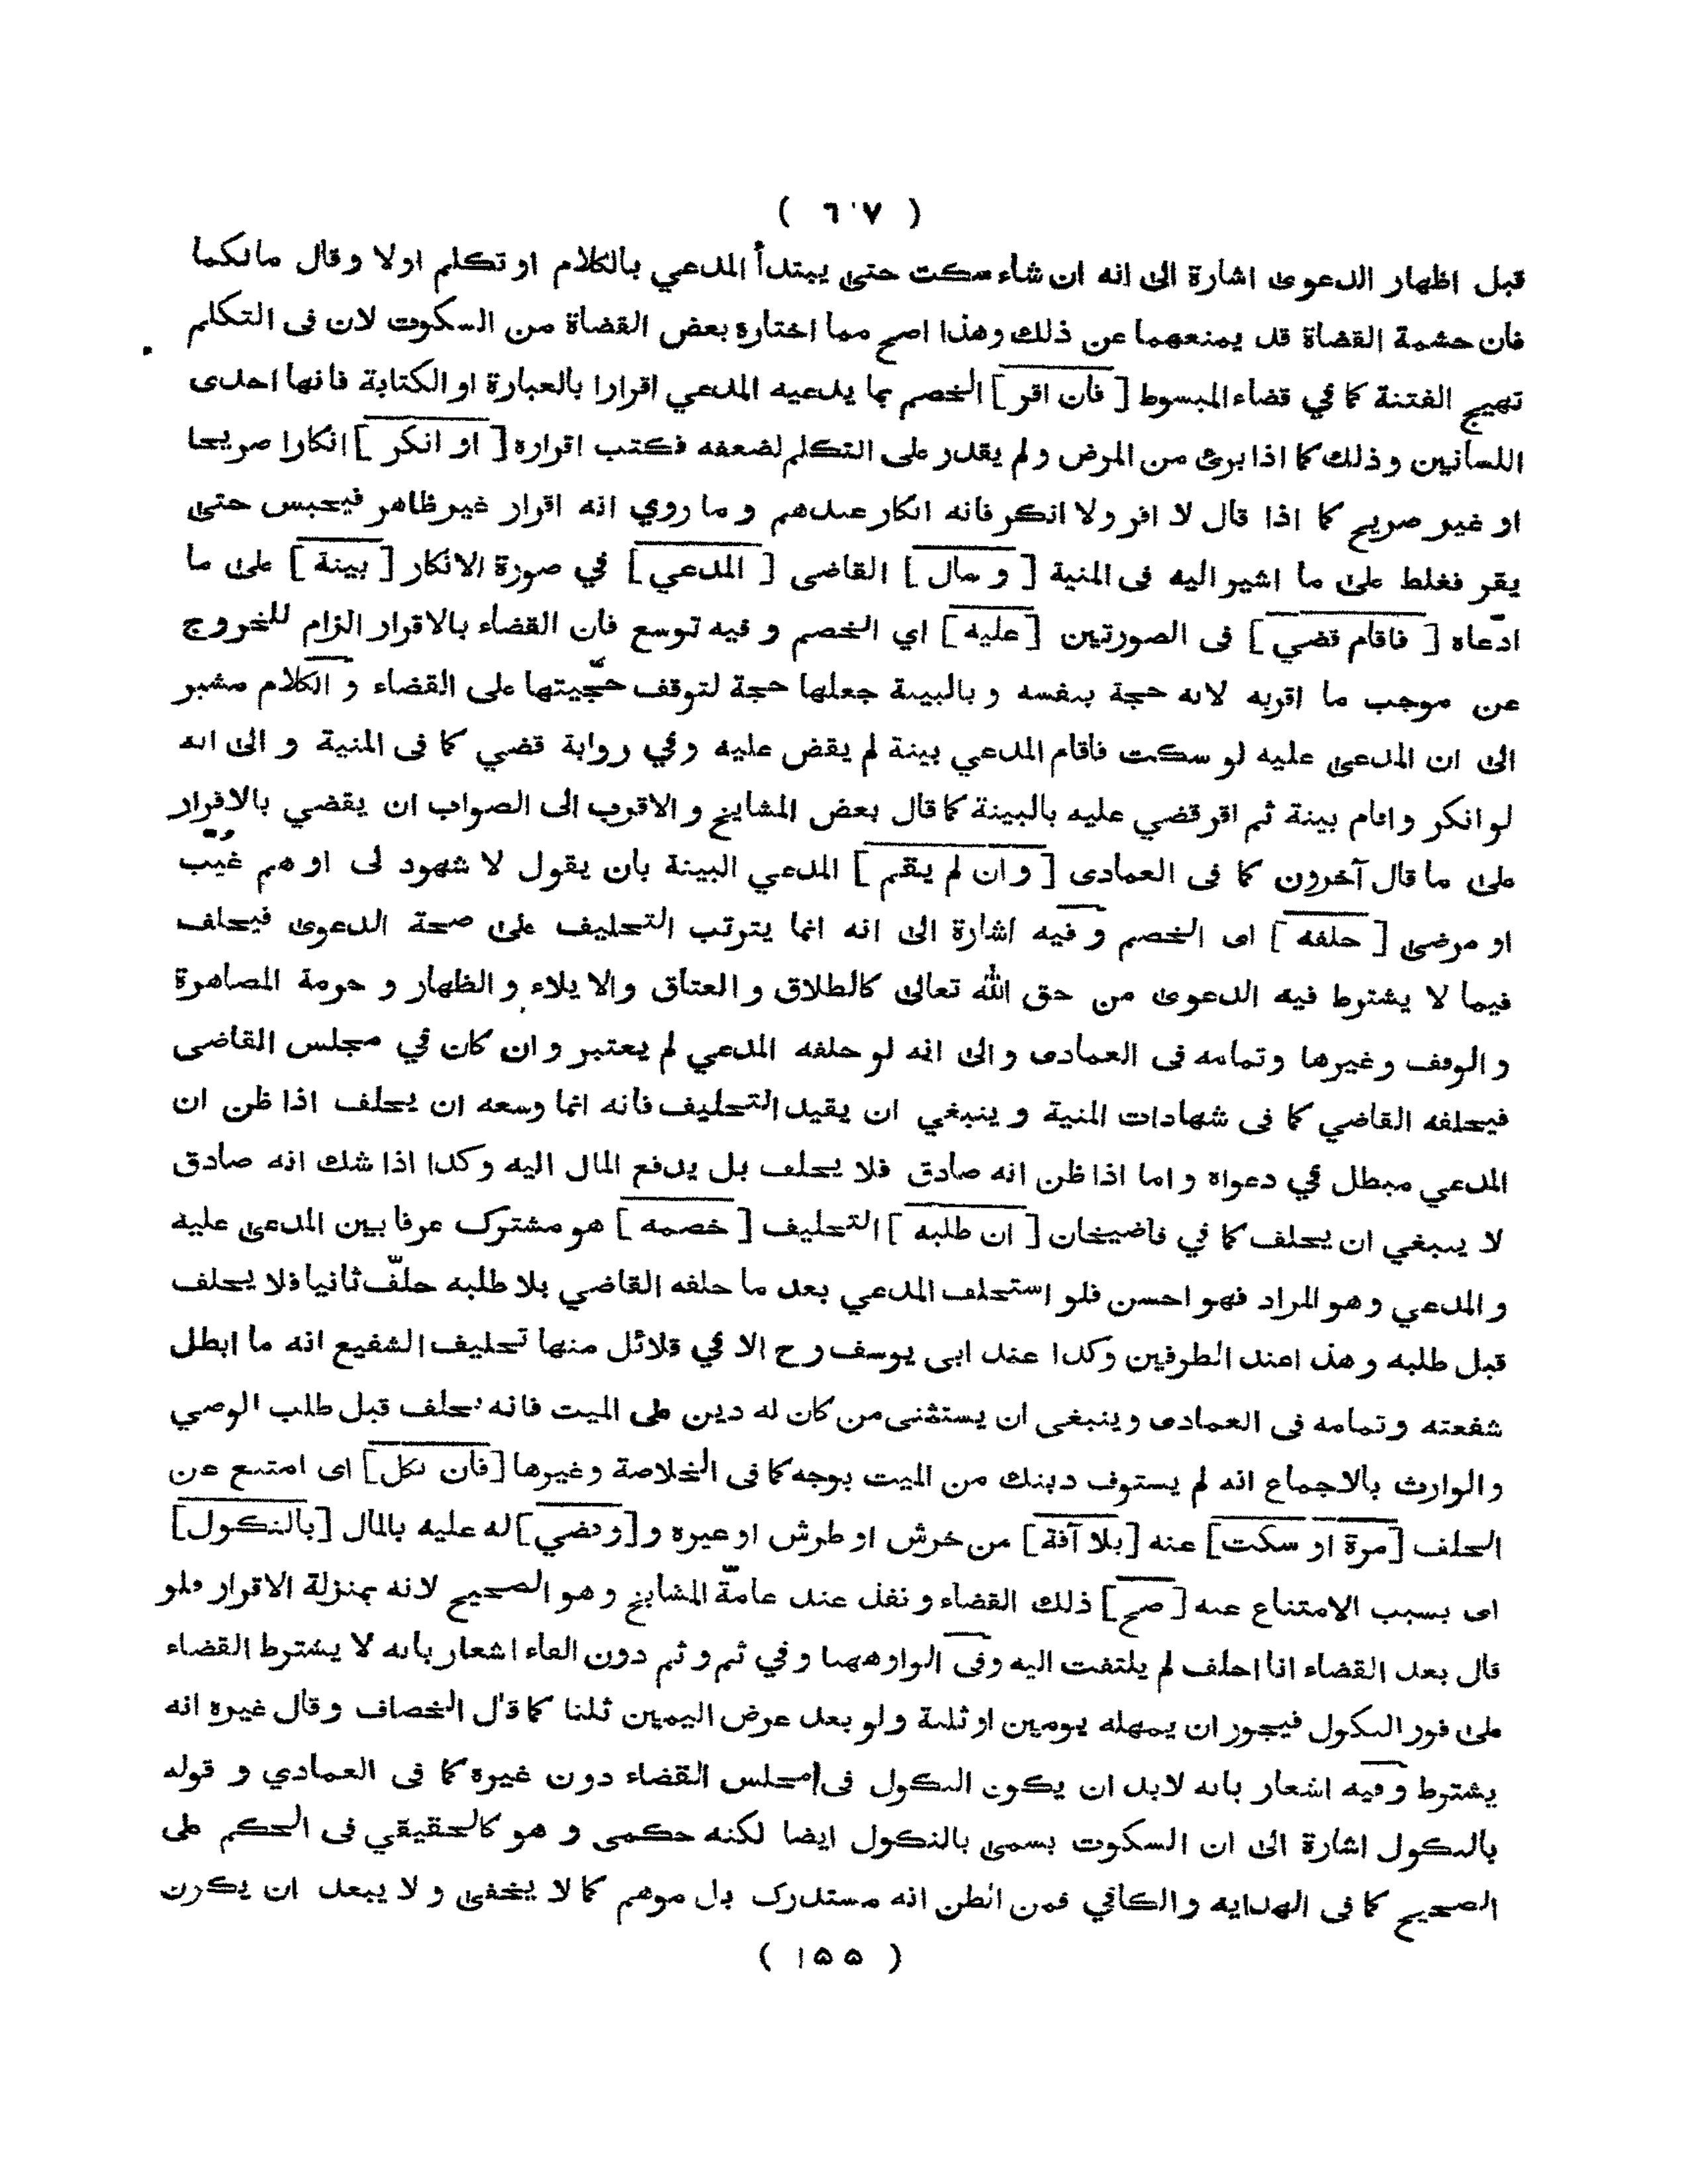 ( ٦٠٧ )
قبل اظهار الدعوى اشارة الى انه ان شاء سكت حتى يبتدأ المدعي بالكلام او تكلم اولا و قال مالكما
فان حشمة القضاة قد يمنعهما عن ذلك وهذا اصح مما اختاره بعض القضاة من السكوت لان فى التكلم
تهييج الفتنة كما في قضاء المبسوط [ فان اقر ] الخصم بما يدعيه المدعي اقرارا بالعبارة او الكتابة فانها احدى
اللسانين وذلك كما اذا برئ من المرض و لم يقدر على التكلم لضعفه فكتب اقراره [ او انكر ] انكارا صريحا
او غير صريح كما اذا قال لا اقر ولا انكر فانه انكار عندهم و ما روي انه اقرار غير ظاهر فيحبس حتى
يقر فغلط على ما اشير اليه فى المنية [ و سال ] القاضى [ المدعي ] في صورة الانكار [ بينة ] على ما
ادعاه [ فاقام قضي ] فى الصورتين [ عليه ] اي الخصم و فيه توسع فان القضاء بالاقرار الزام للخروج
عن موجب ما اقربه لانه حجة بنفسه و بالبينة جعلها حجة لتوقف حجّيتها على القضاء و الكلام مشير
الى ان المدعى عليه لو سكت فاقام المدعي بينة لم يقض عليه وفي رواية قضي كما فى المنية و الى انه
لو انكر و اقام بينة ثم اقر قضي عليه بالبينة كما قال بعض المشايخ و الاقرب الى الصواب ان يقضي بالاقرار
على ما قال آخرون كما فى العمادى [ و ان لم يقم ] المدعي البينة بان يقول لا شهود لى او هم غُيّب
او مرضى [ حلفه ] اى الخصم و فيه اشارة الى انه انما يترتب التحليف على صحة الدعوى فيحلف
فيما لا يشترط فيه الدعوى من حق الله تعالى كالطلاق و العتاق والايلاء و الظهار و حرمة المصاهرة
و الوقف و غيرها و تمامه فى العمادى و الى انه لو حلفه المدعي لم يعتبر و ان كان في مجلس القاضى
فيحلفه القاضي كما فى شهادات المنية و ينبغي ان يقيد التحليف فانه انما وسعه ان يحلف اذا ظن ان
المدعي مبطل في دعواه و اما اذا ظن انه صادق فلا يحلف بل يدفع المال اليه وكذا اذا شك انه صادق
لا ينبغي ان يحلف كما في قاضيخان [ ان طلبه ] التحليف [ خصمه ] هو مشترك عرفا بين المدعى عليه
و المدعي و هو المراد فهو احسن فلو استحلف المدعي بعد ما حلفه القاضي بلا طلبه حلّف ثانيا فلا يحلف
قبل طلبه و هذا عند الطرفين وكذا عند ابى يوسف رح الا في قلائل منها تحليف الشفيع انه ما ابطل
شفعته و تمامه فى العمادى و ينبغى ان يستثنى من كان له دين على الميت فانه يحلف قبل طلب الوصي
والوارث بالاجماع انه لم يستوف دينك من الميت بوجه كما فى الخلاصة و غيرها [ فان نكل ] اى امتنع عن
الحلف [ مرة او سكت ] عنه [ بلا آفة ] من خرش او طرش او غيره و [ وقضي ] له عليه بالمال [ بالنكول ]
اى بسبب الامتناع عنه [ صح ] ذلك القضاء و نفذ عند عامّة المشايخ و هو الصحيح لانه بمنزلة الاقرار فلو
قال بعد القضاء انا احلف لم يلتفت اليه وفى الواو ههنا و في ثم و ثم دون الفاء اشعار بانه لا يشترط القضاء
على فور النكول فيجوز ان يمهله يومين او ثلثة ولو بعد عرض اليمين ثلثا كما قال الخصاف و قال غيره انه
يشترط و فيه اشعار بانه لابد ان يكون النكول فى مجلس القضاء دون غيره كما فى العمادي و قوله
بالنكول اشارة الى ان السكوت يسمى بالنكول ايضا لكنه حكمى و هو كالحقيقي فى الحكم على
الصحيح كما فى الهدايه و الكافي فمن الظن انه مستدرك بل موهم كما لا يخفى و لا يبعد ان يكون
( ١٥٥ )